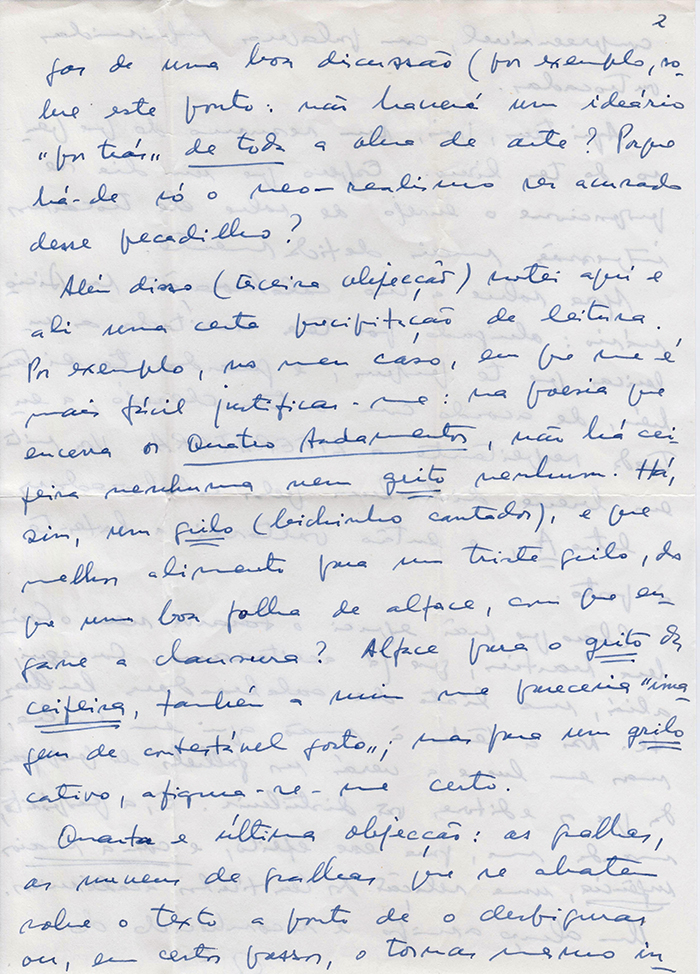 2
gor de uma boa discussão (por exemplo, so-
bre este ponto: não haverá um ideário
"por trás" de toda a obra de arte? Porque
há-de só o neo-realismo ser acusado
desse pecadilho?
Além disso (terceira objecção) notei aqui e
ali uma certa precipitação de leitura.
Por exemplo, no meu caso, em que me é
mais fácil justificar-me: na poesia que
encerra os Quatro Andamentos, não há cei-
feira nenhuma nem grito nenhum. Há,
sim, um grilo (bichinho cantador), e que
melhor alimento para um triste grilo, do
que uma boa folha de alface, com que en-
gane a clausura? Alface para o grito da
ceifeira, também a mim me pareceria "ima-
gem de contestável gosto"; mas para um grilo
cativo, afigura-se-me certo.
Quarta e última objecção: as gralhas,
as nuvens de gralhas que se abatem
sobre o texto a ponto de o desfigurar
ou, em certos passos, o tornar mesmo in